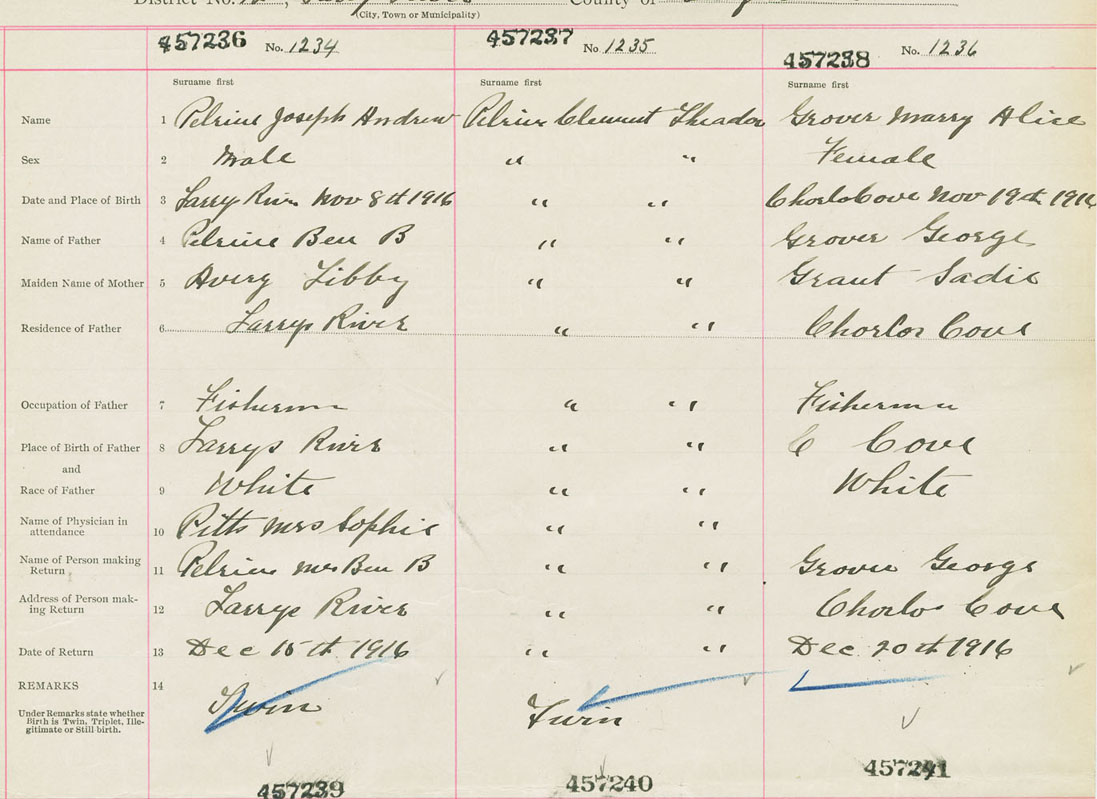 District No. County of
(City, Town or Municipality)
457236 No. 1234 457237 No 1235 457238 No. 1236
Surname first Surname first Surname first
Name 1 Pelrine Joseph Andrew Pelrine Clement Theador Grover Marry Alice
Sex 2 Male " " Female
Date and Place of Birth 3 Larry River Nov 8th 1916 " " Chorlos Cove Nov 19th 1916
Name of Father 4 Pelrine Ben B " " Grover George
Maiden Name of Mother 5 Avery Libby " " Grant Sadie
Residence of Father 6 Larrys River " " Chorlos Cove
Occupation of Father 7 Fisherman " " Fisherman
Place of Birth of Father 8 Larrys River " " C Cove
and
Race of Father 9 White " " White
Name of Physician in
attendance 10 Pitts Mrs Sophie " "
Name of Person making
Return 11 Pelrine Mrs Ben B " " Grover George
Address of Person mak-
ing Return 12 Larrys River " " Chorlos Cove
Date of Return 13 Dec 15th 1916 " " Dec 20th 1916
REMARKS 14 Twin Twin
Under Remarks state whether
Birth is Twin, Triplet, Ille-
gitimate or Still-birth.
457239 457240 457241